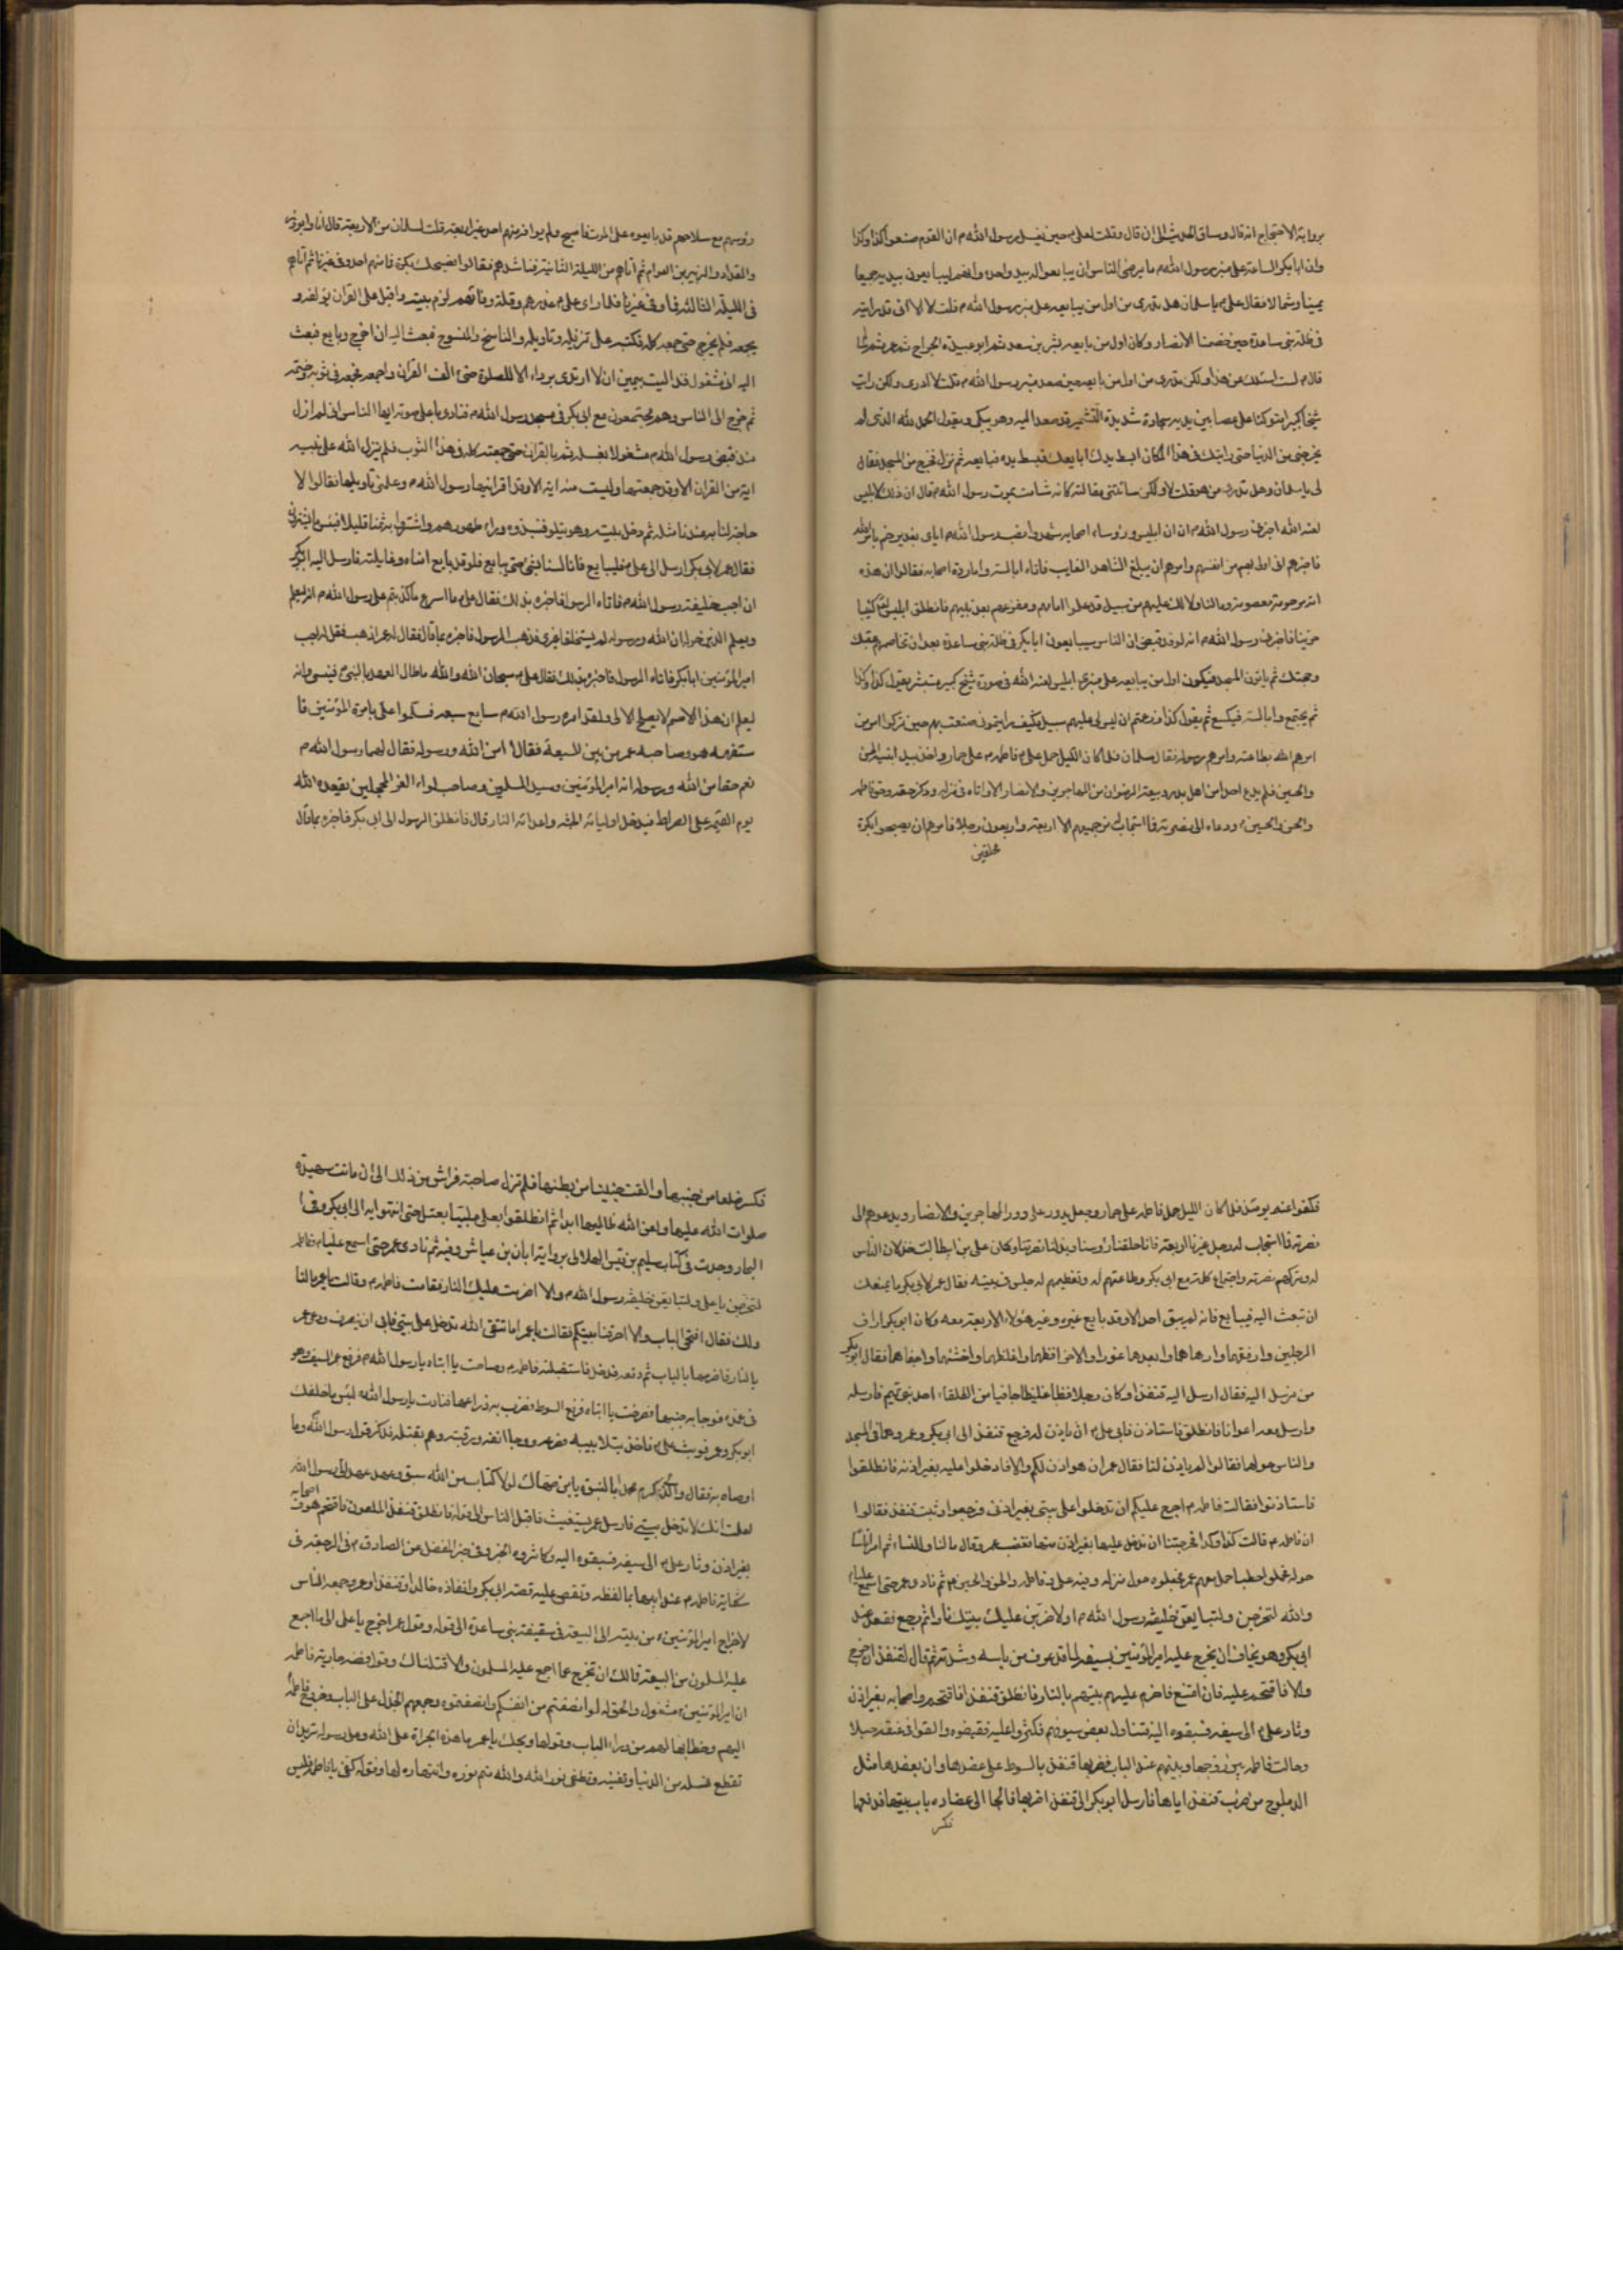 برواية الاحتجاج انه قال وساق الحديث الى ان قال وقلت لعلي ع حين يغسل رسول الله ص ان القوم صنعوا كذا وكذا
وان ابا بكر الساعة على منبر رسول الله ص ما يرضى الناس ان يبايعوا له بيد واحدة وانهم ليبايعون بيديه جميعا
يمينا وشمالا فقال علي ع يا سلمان هل تدري من اول من يبايعه على منبر رسول الله ص قلت لا الا اني قد رايته
في ظلة بني ساعدة حين خصمنا الانصار وكان اول من بايعه بشر بن سعد ثم ابو عبيدة الجراح ثم عمر ثم
قال ع لست اسئلك عن هذا ولكن تدري من اول من بايعه حين صعد منبر رسول الله ص قلت لا ادري ولكن رايت
شيخا كبيرا متوكئا على عصا بين عينيه سجادة شديدة التشمير قد صعد اليه وهو يبكي ويقول الحمد لله الذي لم
يخرجني من الدنيا حتى رايتك في هذا المكان ابسط يدك ابايعك فبسط يده فبايعه ثم نزل فخرج من المسجد فقال
لي يا سلمان وهل تدري من هو قلت لا ولكن سائتني مقالته كانه شامت بموت رسول الله ص قال ان ذلك ابليس
لعنه الله اخبرني رسول الله ص ان ابليس ورؤساء اصحابه شهدوا نصب رسول الله ص اياي بغدير خم بامر الله
فاخبرهم اني اولى بهم من انفسهم وامرهم ان يبلغ الشاهد الغايب فاتاه ابالسته ومردة اصحابه فقالوا ان هذه
امة مرحومة معصومة وما لنا ولا لك عليهم من سبيل قد علموا امامهم ومفزعهم بعد نبيهم فانطلق ابليس كئيبا
حزينا فاخبرني رسول الله ص انه لو قد قبض ان الناس سيبايعون ابا بكر في ظلة بني ساعدة بعد ان تخاصمهم بحقك
وحجتك ثم ياتون المسجد فيكون اول من يبايعه على منبري ابليس لعنه الله في صورة شيخ كبير مشمر يقول كذا وكذا
ثم يجتمع وابالسته فيكسع ثم يقول كذا زعمتم ان ليس لي عليهم سبيل فكيف رايتموني صنعت بهم حين تركوا امر من
امرهم الله بطاعته وامرهم رسوله فقال سلمان فلما كان الليل حمل علي ع فاطمة ع على حمار واخذ بيد ابنيه الحسن
والحسين فلم يدع احدا من اهل بدر وبيعة الرضوان من المهاجرين والانصار الا اتاه في منزله وذكر حقه وحق فاطمة
والحسن والحسين ع ودعاه الى نصرته فما استجاب من جميعهم الا اربعة واربعون رجلا فامرهم ان يصبحوا بكرة
محلقين
رؤسهم مع سلاحهم قد بايعوه على الموت فاصبح ولم يوافه منهم احد غير اربعة قلت لسلمان من الاربعة قال انا وابوذر
والمقداد والزبير بن العوام ثم اتاهم من الليلة الثانية فناشدهم فقالوا نصبحك بكرة فما منهم احد وفى غيرنا ثم اتاهم
في الليلة الثالثة فما وفى غيرنا فلما راى علي ع غدرهم وقلة وفائهم لزم بيته واقبل على القران يؤلفه و
يجمعه فلم يخرج حتى جمعه كله فكتبه على تنزيله وتاويله والناسخ والمنسوخ فبعث اليه ان اخرج وبايع فبعث
اليه اني مشغول فقد اليت بيمين ان لا ارتدي برداء الا للصلوة حتى اؤلف القران واجمعه فجمعه في ثوب وختمه
ثم خرج الى الناس وهم مجتمعون مع ابي بكر في مسجد رسول الله ص فنادى باعلى صوته ايها الناس اني لم ازل
منذ قبض رسول الله ص مشغولا بغسله ثم بالقران حتى جمعته كله في هذا الثوب فلم ينزل الله على نبيه
اية من القران الا وقد جمعتها وليست منه اية الا وقد اقرانيها رسول الله ص وعلمني تاويلها فقالوا لا
حاجة لنا به عندنا مثله ثم دخل بيته وهو يتلو فنبذوه وراء ظهورهم واشتروا به ثمنا قليلا فبئس ما يشترون
فقال عمر لابي بكر ارسل الى علي ع فليبايع فانا لسنا في شئ حتى يبايع ولو قد بايع امناه وغائلته فارسل اليه ابو بكر
ان اجب خليفة رسول الله ص فاتاه الرسول فاخبره بذلك فقال علي ع ما اسرع ما كذبتم على رسول الله ص انه ليعلم
ويعلم الذين حوله ان الله ورسوله لم يستخلفا غيري فذهب الرسول فاخبره بما قال فقال لعمر اذهب فقل له اجب
امير المؤمنين ابا بكر فاتاه الرسول فاخبره بذلك فقال علي ع سبحان الله والله ما طال العهد بالنبي ص فينسى وانه
ليعلم ان هذا الاسم لا يصلح الا لي ولقد امره رسول الله ص سابع سبعة فسلموا علي بامرة المؤمنين فا
ستفهمه هو وصاحبه عمر من بين السبعة فقالا امن الله ورسوله فقال لهما رسول الله ص
نعم حقا من الله ورسوله انه امير المؤمنين وسيد المسلمين وصاحب لواء الغر المحجلين يقعده الله
يوم القيمة على الصراط فيدخل اوليائه الجنة واعدائه النار قال فانطلق الرسول الى ابي بكر فاخبره بما قال
فكفوا عنه يومئذ فلما كان الليل حمل فاطمة على حمار وجعل يدور على دور المهاجرين والانصار ويدعوهم الى
نصرته فما استجاب له رجل غيرنا اربعة فانا حلقنا رؤسنا وبذلنا نصرتنا وكان علي بن ابي طالب لما راى خذلان الناس
له وتركهم نصرته واجتماع كلمتهم مع ابي بكر وطاعتهم له وتعظيمهم له جلس في بيته فقال عمر لابي بكر ما يمنعك
ان تبعث اليه فيبايع فانه لم يبق احد الا وقد بايع غيره وغير هؤلاء الاربعة معه وكان ابو بكر اراف
الرجلين وارفقهما وادهاهما وابعدهما غورا والاخر افظهما واغلظهما واخشنهما واجفاهما فقال ابو بكر
من نرسل اليه فقال ارسل اليه قنفذا وكان رجلا فظا غليظا جافيا من الطلقاء احد بني تيم فارسله
وارسل معه اعوانا فانطلق فاستاذن فابى علي ع ان ياذن له فرجع قنفذ الى ابي بكر وعمر وهما في المسجد
والناس حولهما فقالوا لم ياذن لنا فقال عمر ان هو اذن لكم والا فادخلوا عليه بغير اذنه فانطلقوا
فاستاذنوا فقالت فاطمة ع احرج عليكم ان تدخلوا على بيتي بغير اذن فرجعوا وثبت قنفذ فقالوا
ان فاطمة ع قالت كذا وكذا فحرجتنا ان ندخل عليها بغير اذن منها فغضب عمر وقال ما لنا وللنساء ثم امر اناسا
حوله فحملوا حطبا وحمل معهم عمر فجعلوه حول منزله وفيه علي وفاطمة والحسن والحسين ع ثم نادى عمر حتى اسمع عليا ع
والله لتخرجن ولتبايعن خليفة رسول الله ص او لاضرمن عليك بيتك نارا ثم رجع فقعد عند
ابي بكر وهو يخاف ان يخرج عليه امير المؤمنين بسيفه لما قد عرف من باسه وشدته ثم قال لقنفذ ان خرج
والا فاقتحم عليه فان امتنع فاضرم عليهم بيتهم بالنار فانطلق قنفذ فاقتحم هو واصحابه بغير اذن
وثار علي ع الى سيفه فسبقوه اليه فتناول بعض سيوفهم فكثروا عليه فقبضوه والقوا في عنقه حبلا
وحالت فاطمة بين زوجها وبينهم عند الباب فضربها قنفذ بالسوط على عضدها وان بعضدها مثل
الدملوج من ضرب قنفذ اياها فارسل ابو بكر الى قنفذ اضربها فالجاها الى عضادة باب بيتها فدفعها
فكسر
فكسر ضلعا من جنبها والقت جنينا من بطنها فلم تزل صاحبة فراش من ذلك الى ان ماتت شهيدة
صلوات الله عليها ولعن الله ظالميها ابدا ثم انطلقوا بعلي ملببا يعتل حتى انتهوا به الى ابي بكر وفي
البحار وجدت في كتاب سليم بن قيس الهلالي برواية ابان بن عياش وفيه ثم نادى عمر حتى اسمع عليا وفاطمة
لتخرجن يا علي ولتبايعن خليفة رسول الله ص والا اضرمت عليك النار فقامت فاطمة ع وقالت يا عمر ما لنا
ولك فقال افتحي الباب والا احرقنا بيتكم فقالت يا عمر اما تتقي الله تدخل على بيتي فابى ان ينصرف ودعا عمر
بالنار فاضرمها بالباب ثم دفعه فدخل فاستقبلته فاطمة ع وصاحت يا ابتاه يا رسول الله ص فرفع عمر السيف وهو
في غمده فوجا به جنبها فصرخت يا ابتاه فرفع السوط فضرب به ذراعها فنادت يا رسول الله لبئس ما خلفك
ابو بكر وعمر فوثب علي ع فاخذ بتلابيبه فصرعه ووجا انفه ورقبته وهم بقتله فذكر قول رسول الله وما
اوصاه به فقال والذي كرم محمدا بالنبوة يا بن صهاك لولا كتاب من الله سبق وعهد عهد الى رسول الله
لعلمت انك لا تدخل بيتي فارسل عمر يستغيث فاقبل الناس الى قوله فانطلق قنفذ الملعون فاقتحم هو واصحابه
بغير اذن وثار علي ع الى سيفه فسبقوه اليه وكاثروه الخبر وفي خبر المفضل عن الصادق ع في الرجعة في
شكاية فاطمة ع عند ابيها بالفظه وتقص عليه قصة ابي بكر وانفاذه خالدا وقنفذا وعمر وجمعه الناس
لاخراج امير المؤمنين ع من بيته الى البيعة في سقيفة بني ساعدة الى قوله وقول عمر اخرج يا علي الى ما اجمع
عليه المسلمون من البيعة فما لك ان تخرج عما اجمع عليه المسلمون والا قتلناك وقول فضة جارية فاطمة
ان امير المؤمنين ع مشغول والحق له لو انصفتم من انفسكم وانصفتموه وجمعهم الجزل على الباب وخروج فاطمة
اليهم وخطابها لهم من وراء الباب وقولها ويحك يا عمر ما هذه الجراة على الله وعلى رسوله تريد ان
تقطع نسله من الدنيا وتفنيه وتطفئ نور الله والله متم نوره وانتهاره لها وقوله كفي يا فاطمة فليس